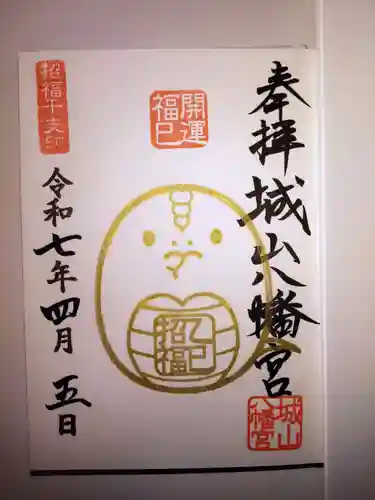 奉拝
城山八幡宮
城山
八幡宮
開運
福巳
乙巳
招福
招福干支印
令和七年四月五日